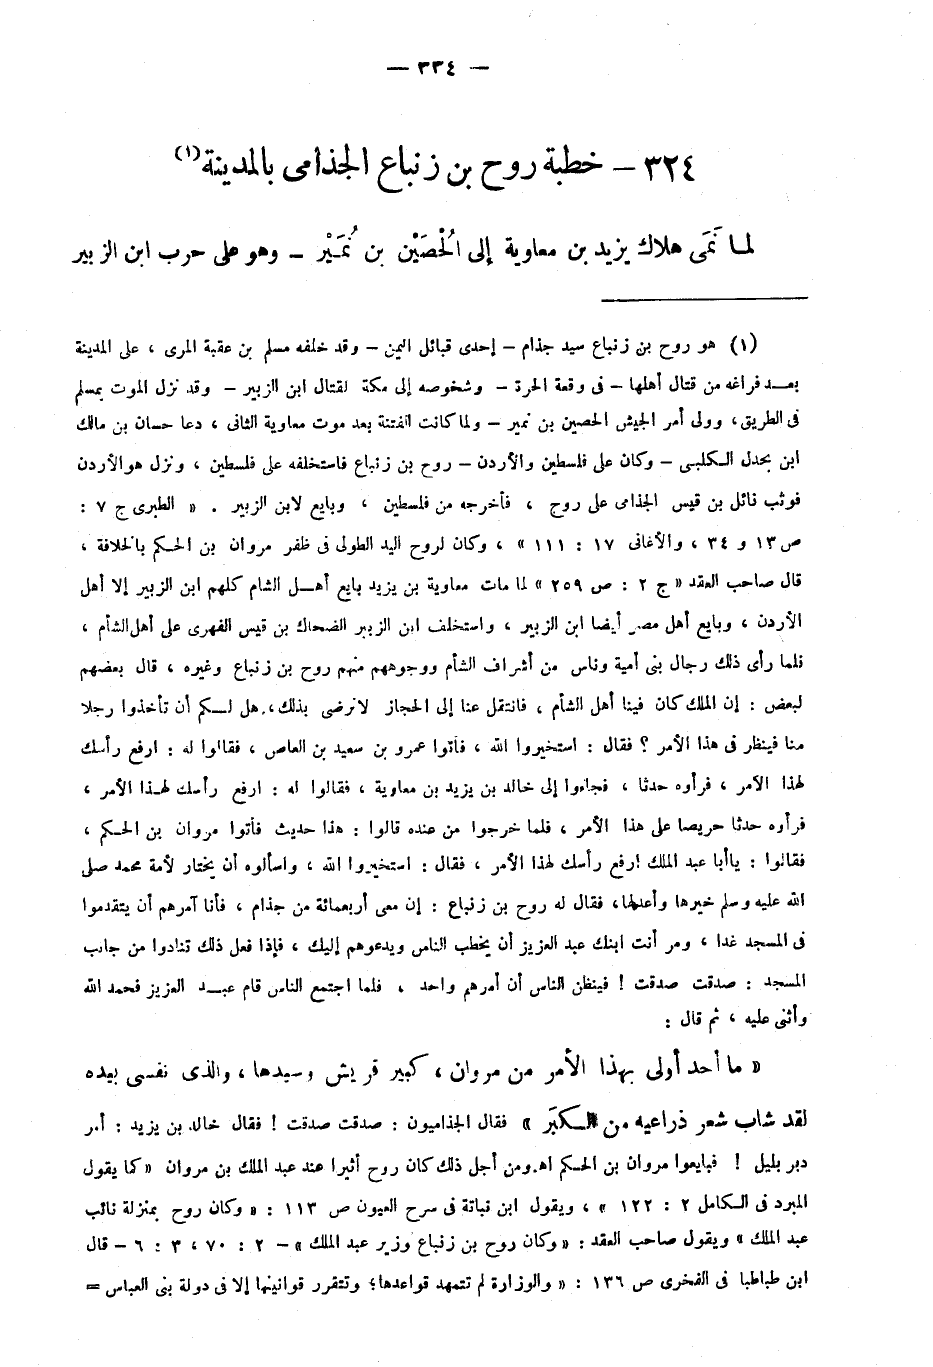 — ٣٣٤ —
٣٢٤ — خطبة روح بن زنباع الجذامى بالمدينة (١)
لمـا نَمَى هلاك يزيد بن معاوية إلى الْحُصَيْن بن نُمَـيْر — وهو على حرب ابن الزبير
(١) هو روح بن زنباع سيد جذام — إحدى قبائل اليمن — وقد خلفه مسلم بن عقبة المرى ، على المدينة
بعـد فراغه من قتال أهلها — فى وقعة الحرة — وشخوصه إلى مكة لقتال ابن الزبير — وقد نزل الموت بمسلم
فى الطريق ، وولى أمر الجيش الحصين بن نمير — ولما كانت الفتنة بعد موت معاوية الثانى ، دعا حسان بن مالك
ابن بحدل الـكلبـى — وكان على فلسطين والأردن — روح بن زنباع فاستخلفه على فلسطين ، ونزل هو الأردن
فوثب نائل بن قيس الجذامى على روح ، فأخرجه من فلسطين ، وبايع لابن الزبير . « الطبرى ج ٧ :
ص ١٣ و ٣٤ ، والأغانى ١٧ : ١١١ » ، وكان لروح اليد الطولى فى ظفر مروان بن الحـكم بالخلافة ،
قال صاحب العقد « ج ٢ : ص ٢٥٩ » لما مات معاوية بن يزيد بايع أهـل الشام كلهم ابن الزبير إلا أهل
الأردن ، وبايع أهل مصر أيضا ابن الزبير ، واستخلف ابن الزبير الضحاك بن قيس الفهرى على أهل الشأم ،
فلما رأى ذلك رجال بنى أمية وناس من أشراف الشأم ووجوههم منهم روح بن زنباع وغيره ، قال بعضهم
لبعض : إن الملك كان فينا أهل الشأم ، فانتقل عنا إلى الحجاز لا نرضى بذلك ، هل لـكم أن تأخذوا رجلا
منا فينظر فى هذا الأمر ؟ فقال : استخيروا الله ، فأتوا عمرو بن سعيد بن العاص ، فقالوا له : ارفع رأسك
لهذا الأمر ، فرأوه حدثا ، فجاءوا إلى خالد بن يزيد بن معاوية ، فقالوا له : ارفع رأسك لهـذا الأمر ،
فرأوه حدثا حريصا على هذا الأمر ، فلما خرجوا من عنده قالوا : هذا حديث فأتوا مروان بن الحـكم ،
فقالوا : يا أبا عبد الملك ارفع رأسك لهذا الأمر ، فقال : استخيروا الله ، واسألوه أن يختار لأمة محمد صلى
الله عليه وسلم خيرها وأعدلها، فقال له روح بن زنباع : إن معى أربعمائة من جذام ، فأنا آمرهم أن يتقدموا
فى المسجد غدا ، ومر أنت ابنك عبد العزيز أن يخطب الناس ويدعوهم إليك ، فإذا فعل ذلك تنادوا من جانب
المسجد : صدقت صدقت ! فيظن الناس أن أمرهم واحد ، فلما اجتمع الناس قام عبـد العزيز فحمد الله
وأثنى عليه ، ثم قال :
« ما أحد أولى بهذا الأمر من مروان ، كبير قريش وسيدها ، والذى نفسى بيده
لقد شاب شعر ذراعيه من الـكبَر » فقال الجذاميون : صدقت صدقت ! فقال خالد بن يزيد : أمر
دبر بليل ! فبايعوا مروان بن الحـكم اهـ ومن أجل ذلك كان روح أثيرا عند عبد الملك بن مروان « كما يقول
المبرد فى الـكامل ٢ : ١٢٢ » ، ويقول ابن نباتة فى سرح العيون ص ١١٣ : « وكان روح بمنزلة نائب
عبد الملك » ويقول صاحب العقد : « وكان روح بن زنباع وزير عبد الملك » — ٢ : ٧٠ ، ٣ : ٦ — قال
ابن طباطبا فى الفخرى ص ١٣٦ : « والوزارة لم تتمهد قواعدها؛ وتتقرر قوانينها إلا فى دولة بنى العباس =